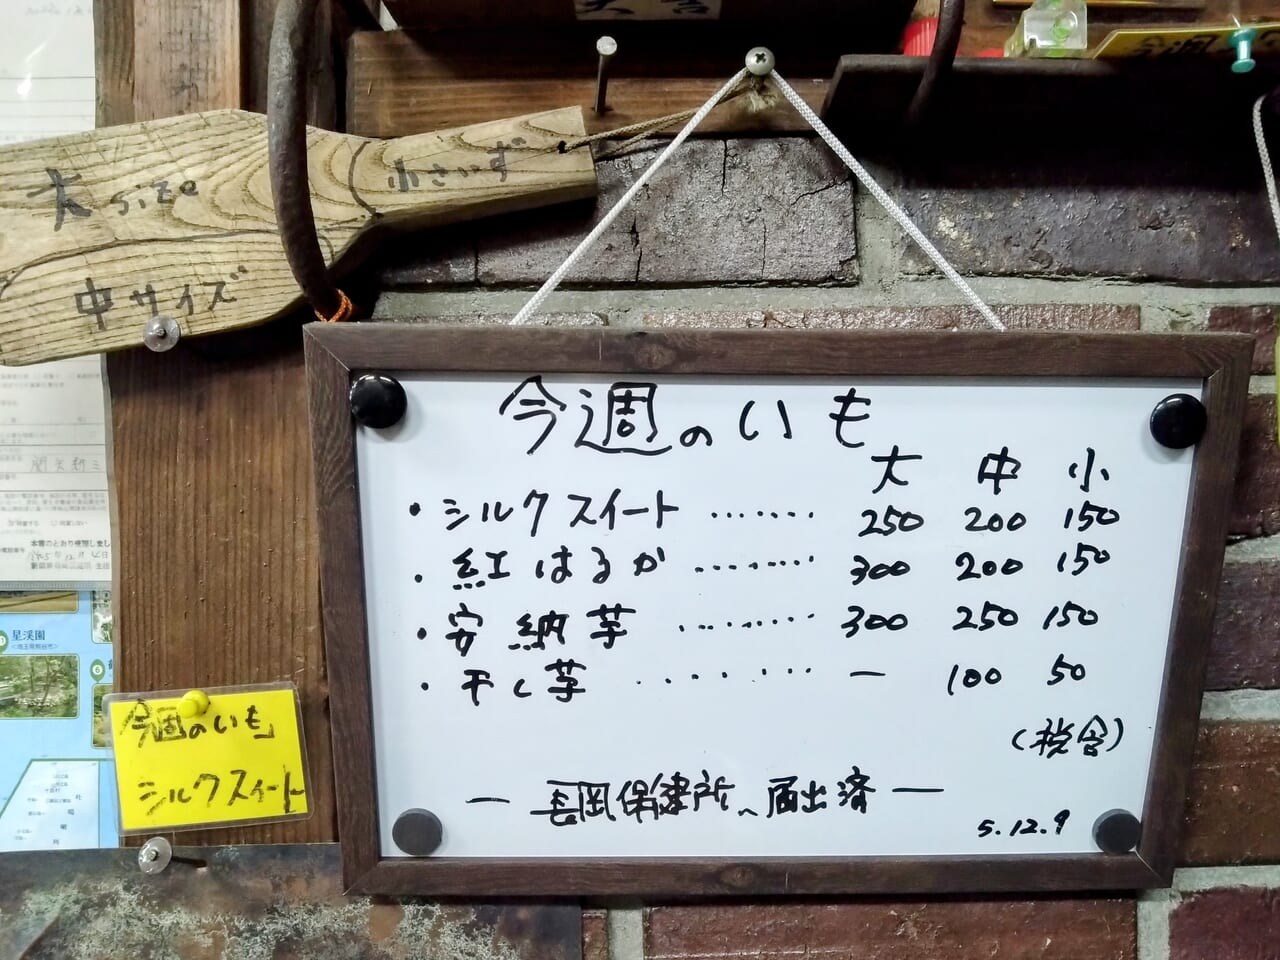 大size
小さいず
中サイズ
今週のいも
大 中 小
・シルクスイート ……… 250 200 150
・紅はるか ……… 300 200 150
・安納芋 ……… 300 250 150
・干し芋 ……… ー 100 50
(税含)
ー 長岡保健所へ届出済 ー
5.12.9
今週のいも」
シルクスイート
星渓園